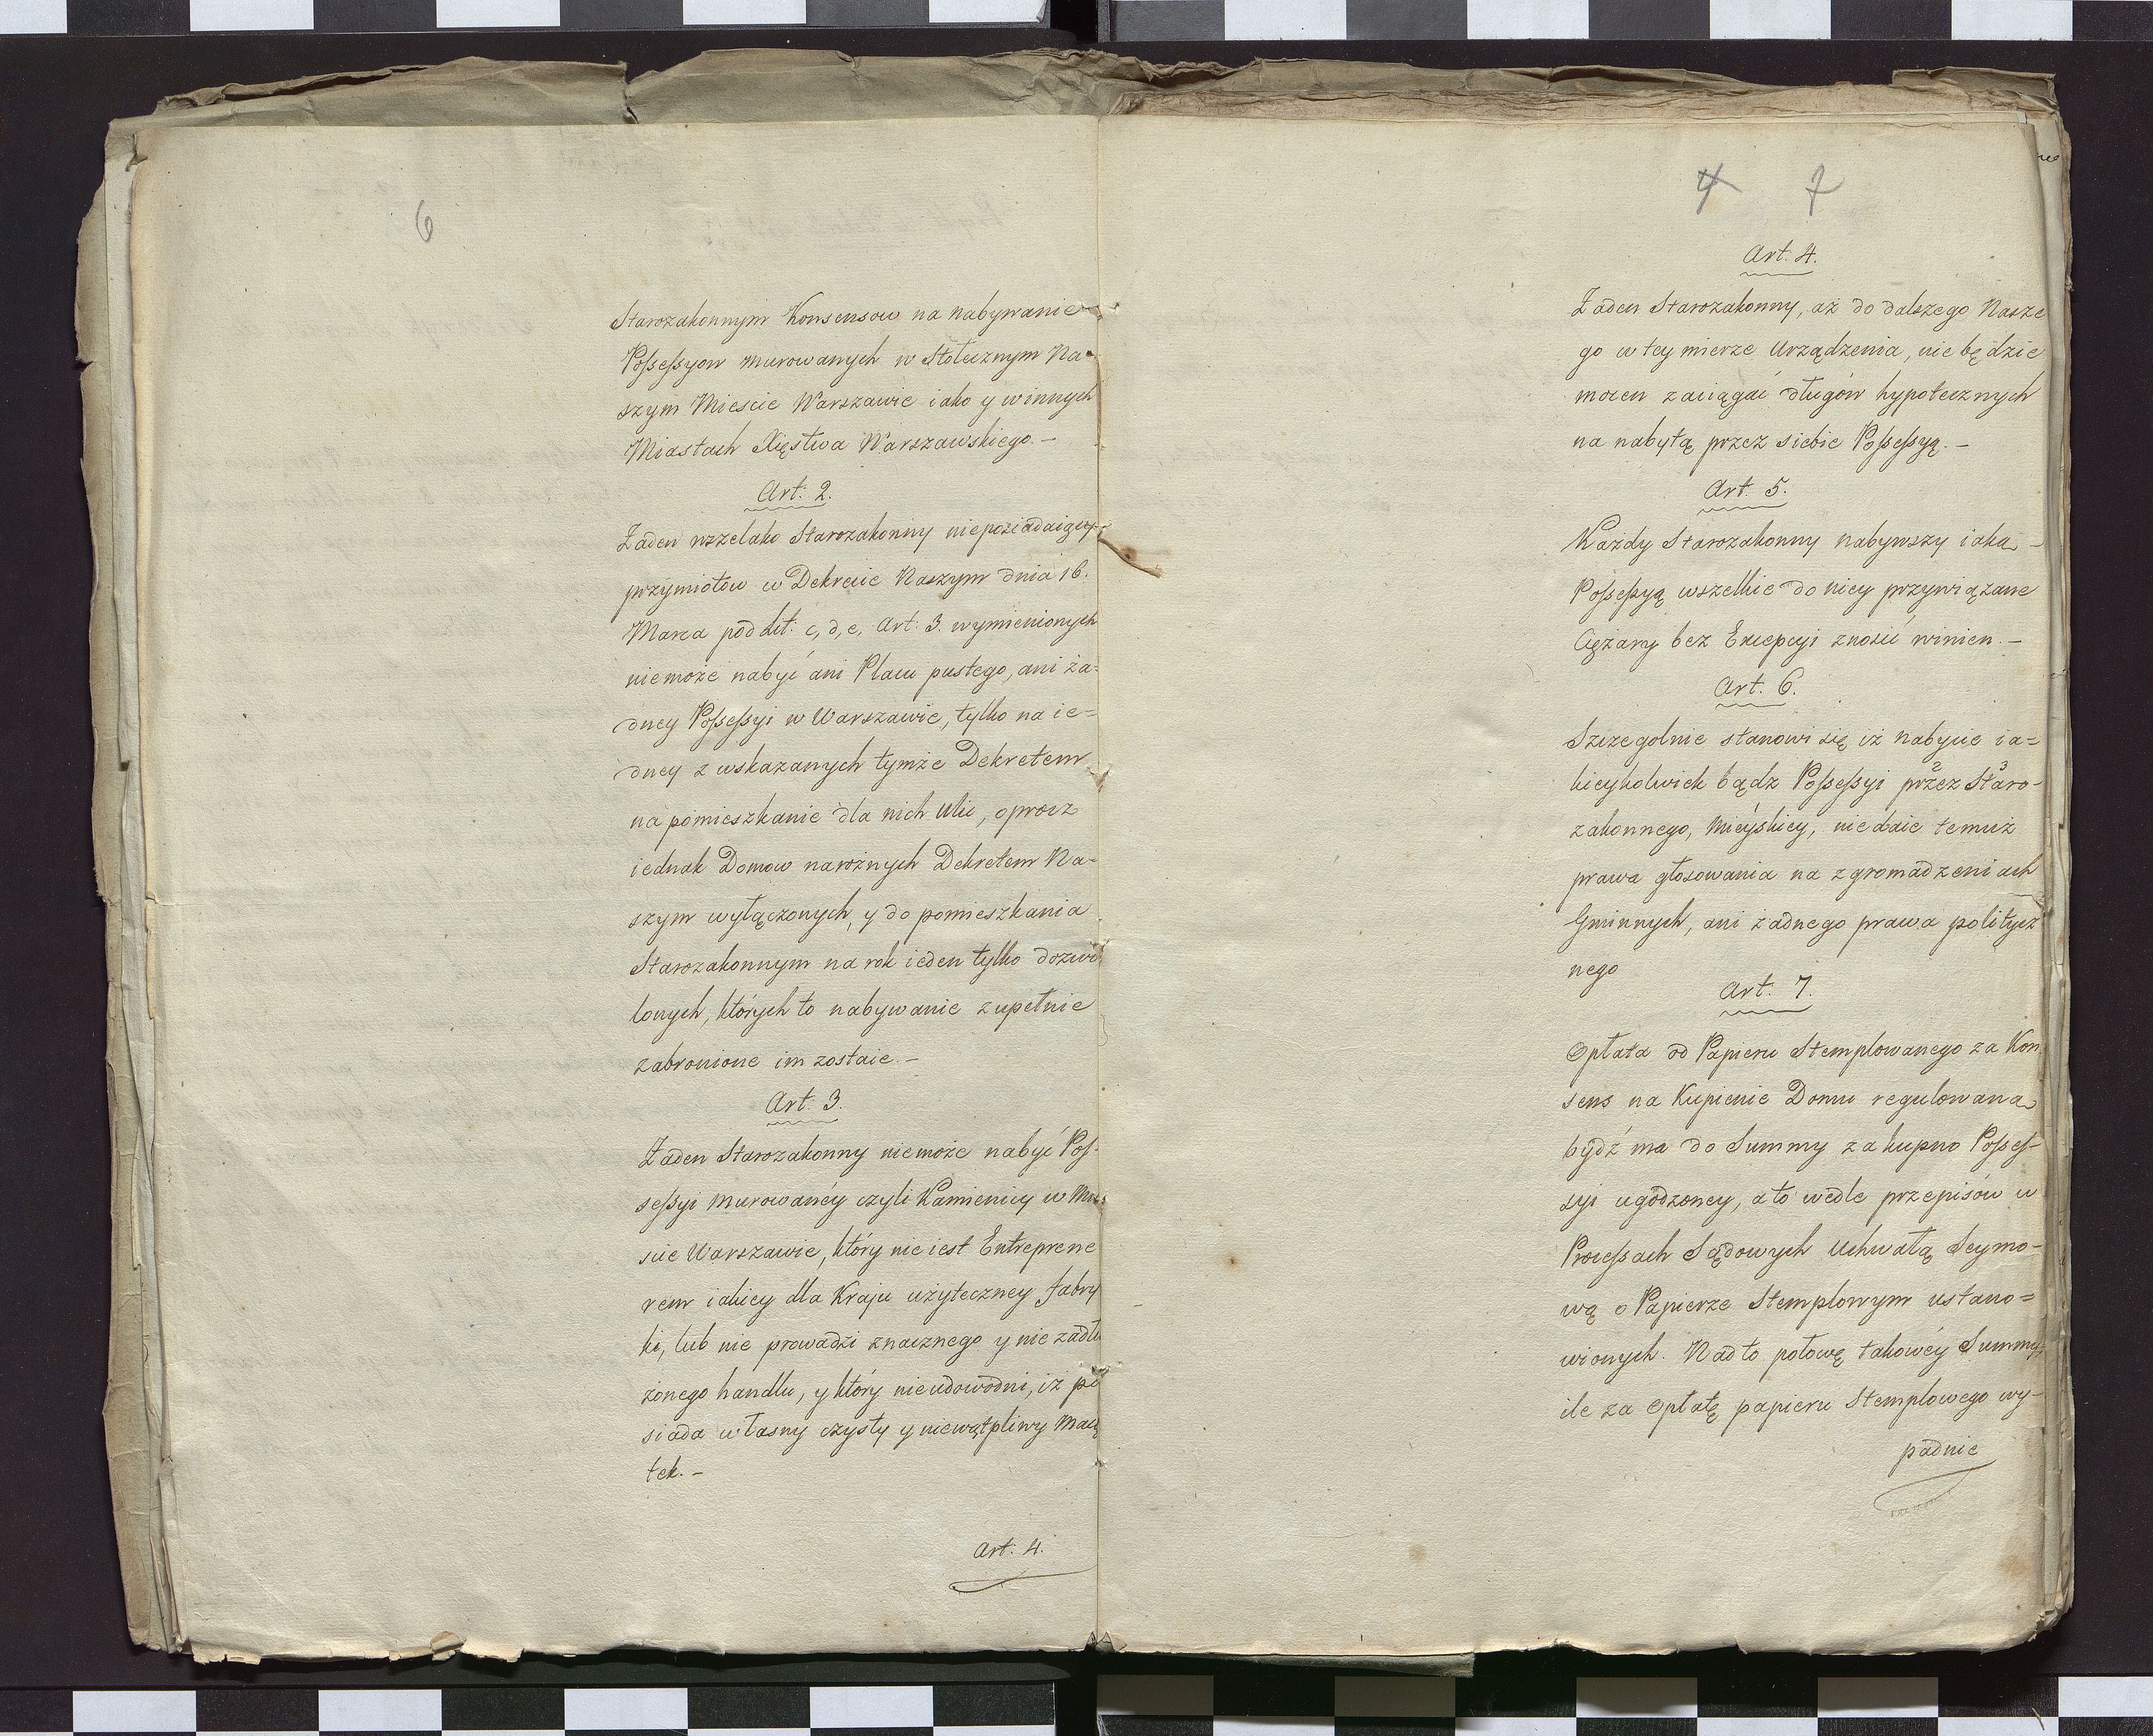 6
Starozakonnym Konsensow na nabywanie
Possessyow murowanych w Stołecznym Na-
szym Miescie Warszawie iako y w innych
Miastach Xięstwa Warszawskiego. -
Art: 2.
Żaden wszelako Starozakonny nieposiadaiący
przymiotow w Dekrecie Naszym dnia 16.
Marca pod Lit: c, d, e, Art: 3. wymienionych
niemoże nabyć ani Placu pustego, ani ża=
dney Possessyi w Warszawie, tylko na ie=
dney z wskazanych tymże Dekretem
na pomieszkanie dla nich Ulic, oprocz
iednak Domow narożnych Dekretem Na-
szym wyłączonych, y do pomieszkania
Starozakonnym na rok ieden tylko dozwo
lonych, których to nabywanie zupełnie
zabronione im zostaie. -
Art: 3.
Żaden Starozakonny niemoże nabyć Pos-
sessyi murowanéy czyli Kamienicy w Mie
scie Warszawie, który nie iest Entreprene
rem iakiey dla Kraju użyteczney fabry
ki, lub nie prowadzi znacznego y nie zadłu
żonego handlu, y który nieudowodni, iż po
siada własny czysty y niewątpliwy Maią
tek. -
Art: 4.
4 7
Art: 4.
Żaden Starozakonny, aż do dalszego Nasze
go w tey mierze Urządzenia, nie będzie
mocen zaciągać długów hypotecznych
na nabytą przez siebie Possessyą. -
Art. 5.
Każdy Starozakonny nabywszy iaką -
Possessyą wszelkie do niey przywiązane
Ciężary bez Excepcyi znosić winien. -
Art: 6.
Szczegolnie stanowi się iż nabycie ia=
kieykolwiek bądz Possessyi przez Staro-
2 3
zakonnego, Mieyskiey, niedaie temuż
prawa głosowania na zgromadzeniach
Gminnych, ani żadnego prawa politycz
nego
Art: 7.
Opłata od Papieru Stemplowanego za Kon
sens na Kupienie Domu regulowana
bydź ma do Summy za kupno Posses-
syi ugodzoney, a to wedle przepisów w
Processach Sądowych Uchwałą Seymo-
wą o Papierze Stemplowym ustano=
wionych. Nadto połowę takowéy Summy,
ile za Opłatę papieru Stemplowego wy-
padnie